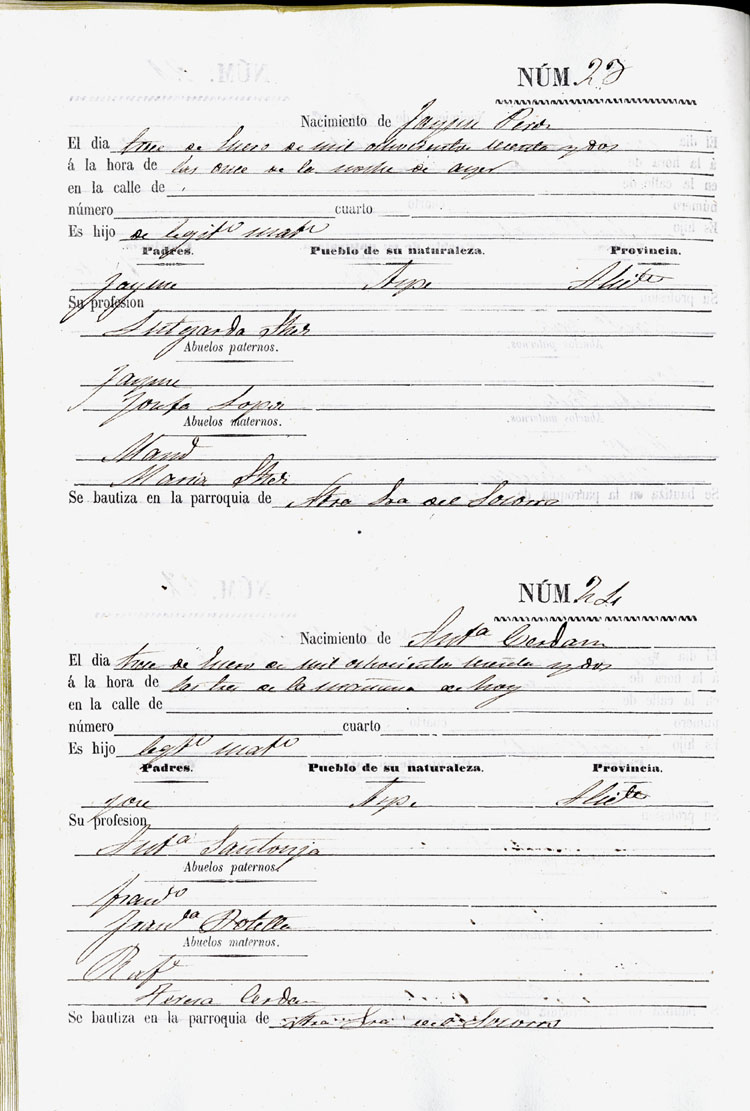 NÚM. 23
Nacimiento de Jayme Perez
El dia trece de Enero de mil ochocientos sesenta y dos
á la hora de las once de la noche de ayer
en la calle de
número cuarto
Es hijo de legit.º mat.º
Padres. Pueblo de su naturaleza. Provincia.
Jayme Aspe Alic.te
Su profesion
Lutgarda
Abuelos paternos.
Jayme
Josefa
Abuelos maternos.
Man.l
Maria
Se bautiza en la parroquia de Ntra Sra del Socorro
NÚM. 24
Nacimiento de Ant.a Cerdan
El dia trece de Enero de mil ochocientos sesenta y dos
á la hora de las tres de la mañana de hoy
en la calle de
número cuarto
Es hijo legit.º mat.º
Padres. Pueblo de su naturaleza. Provincia.
Jose Aspe Alic.te
Su profesion
Ant.a Santonja
Abuelos paternos.
Fran.co
Fran.ca Botella
Abuelos maternos.
Raf.l
Teresa Cerdan
Se bautiza en la parroquia de Ntra Sra del Socorro